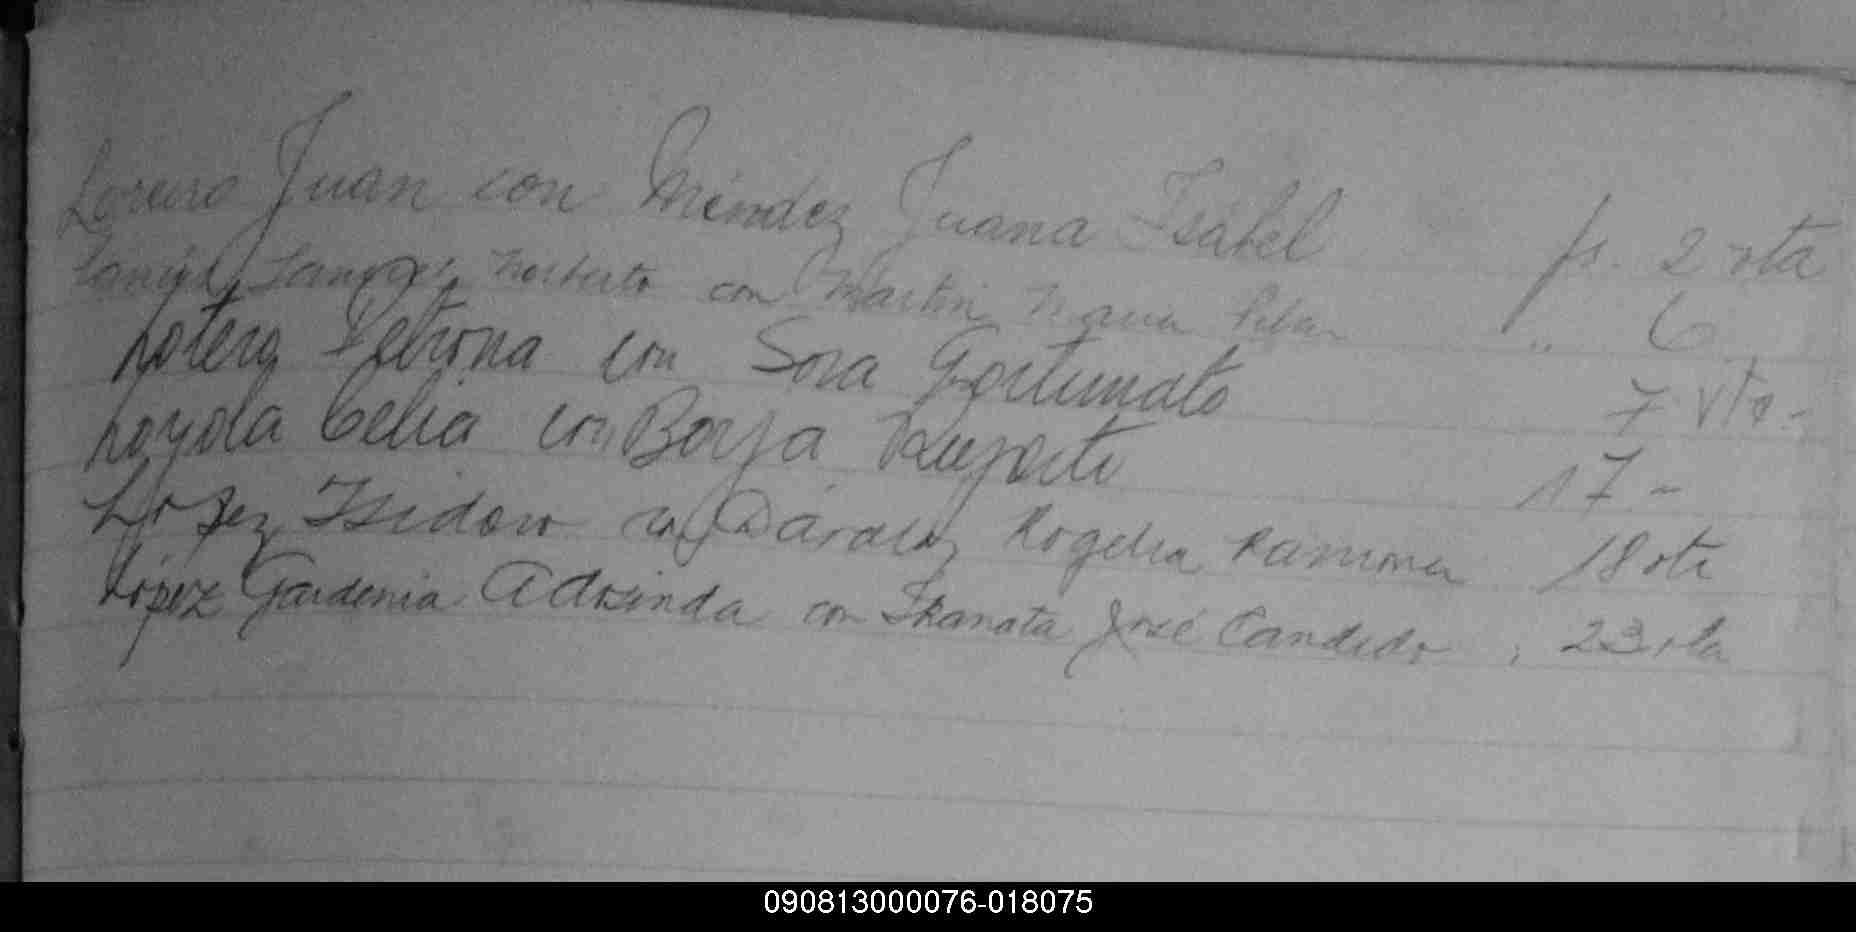 Lorenzo Juan con Méndez Juana Isabel fs. 2 vta
Norberto con Martin Maria Pilar " 6
Lotero Petrona con Sosa Fortunato 7 vta -
Loyola Celia con Borja Ruperto 17 -
Lopez Isidoro con Rogelia Ramona 18 vta
López Gardenia Adosinda con José Candido , 23 vta
090813000076-018075